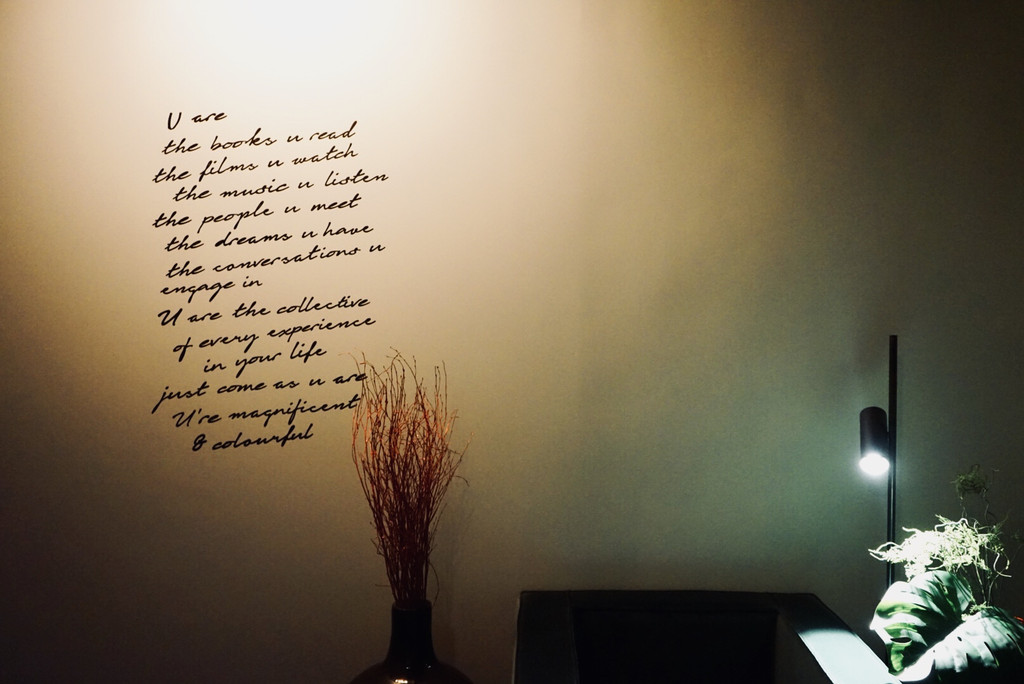 U are
the books u read
the films u watch
the music u listen
the people u meet
the dreams u have
the conversations u
engage in
U are the collective
of every experience
in your life
just come as u are
U're magnificent
& colourful